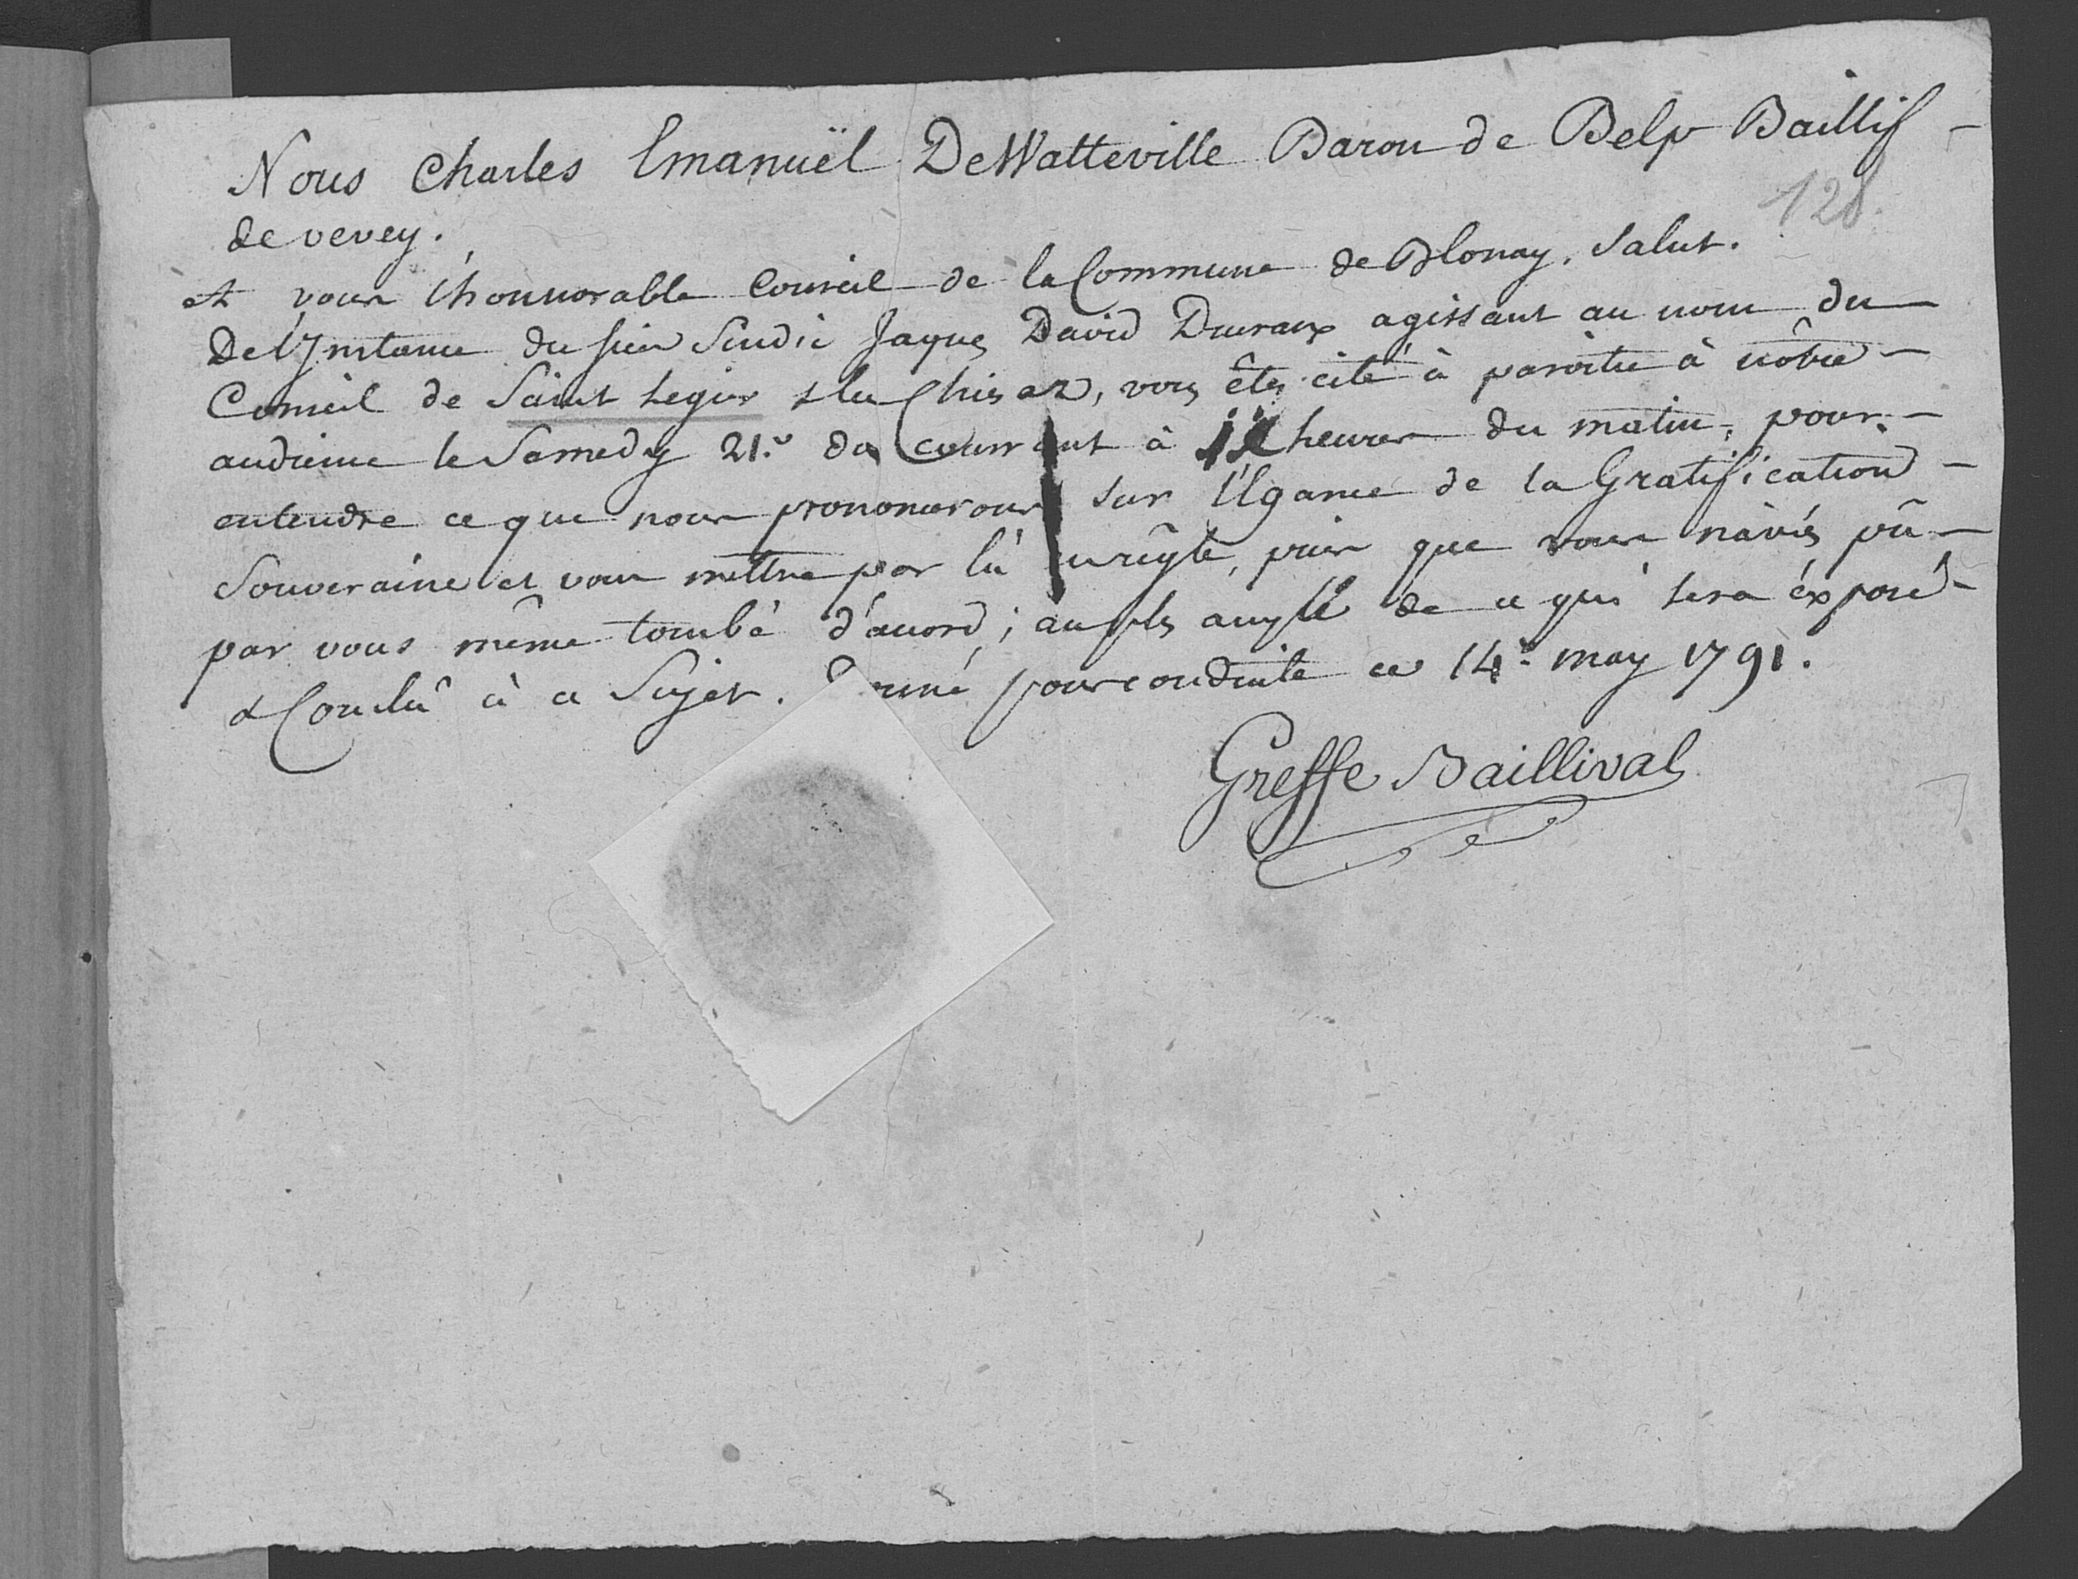 Nous Charles Emanuël DeWatteville Baron de Belp Baillif -
128.
de vevey.
A vous l'honnorable Conseil de la Commune de Blonay, Salut.
De l'Instance du sieur Sindic Jaques David Ducraux agissant au nom du
Conseil de Saint Legier & la Chiesaz, vous êtes cité à paroitre à nôtre -
audience le Samedy 21.e du Courrant à heures du matin, pour -
entendre ce que nous prononcerons sur l'Egance de la Gratification -
Souveraine et vous mettre par là en règle, puis que vous n'avés pû -
par vous même tombé d'accord; au plus ample de ce qui sera éxposé -
& Conclû à ce Sujet. Donné pour conduite ce 14.e may 1791.
Greffe Baillival